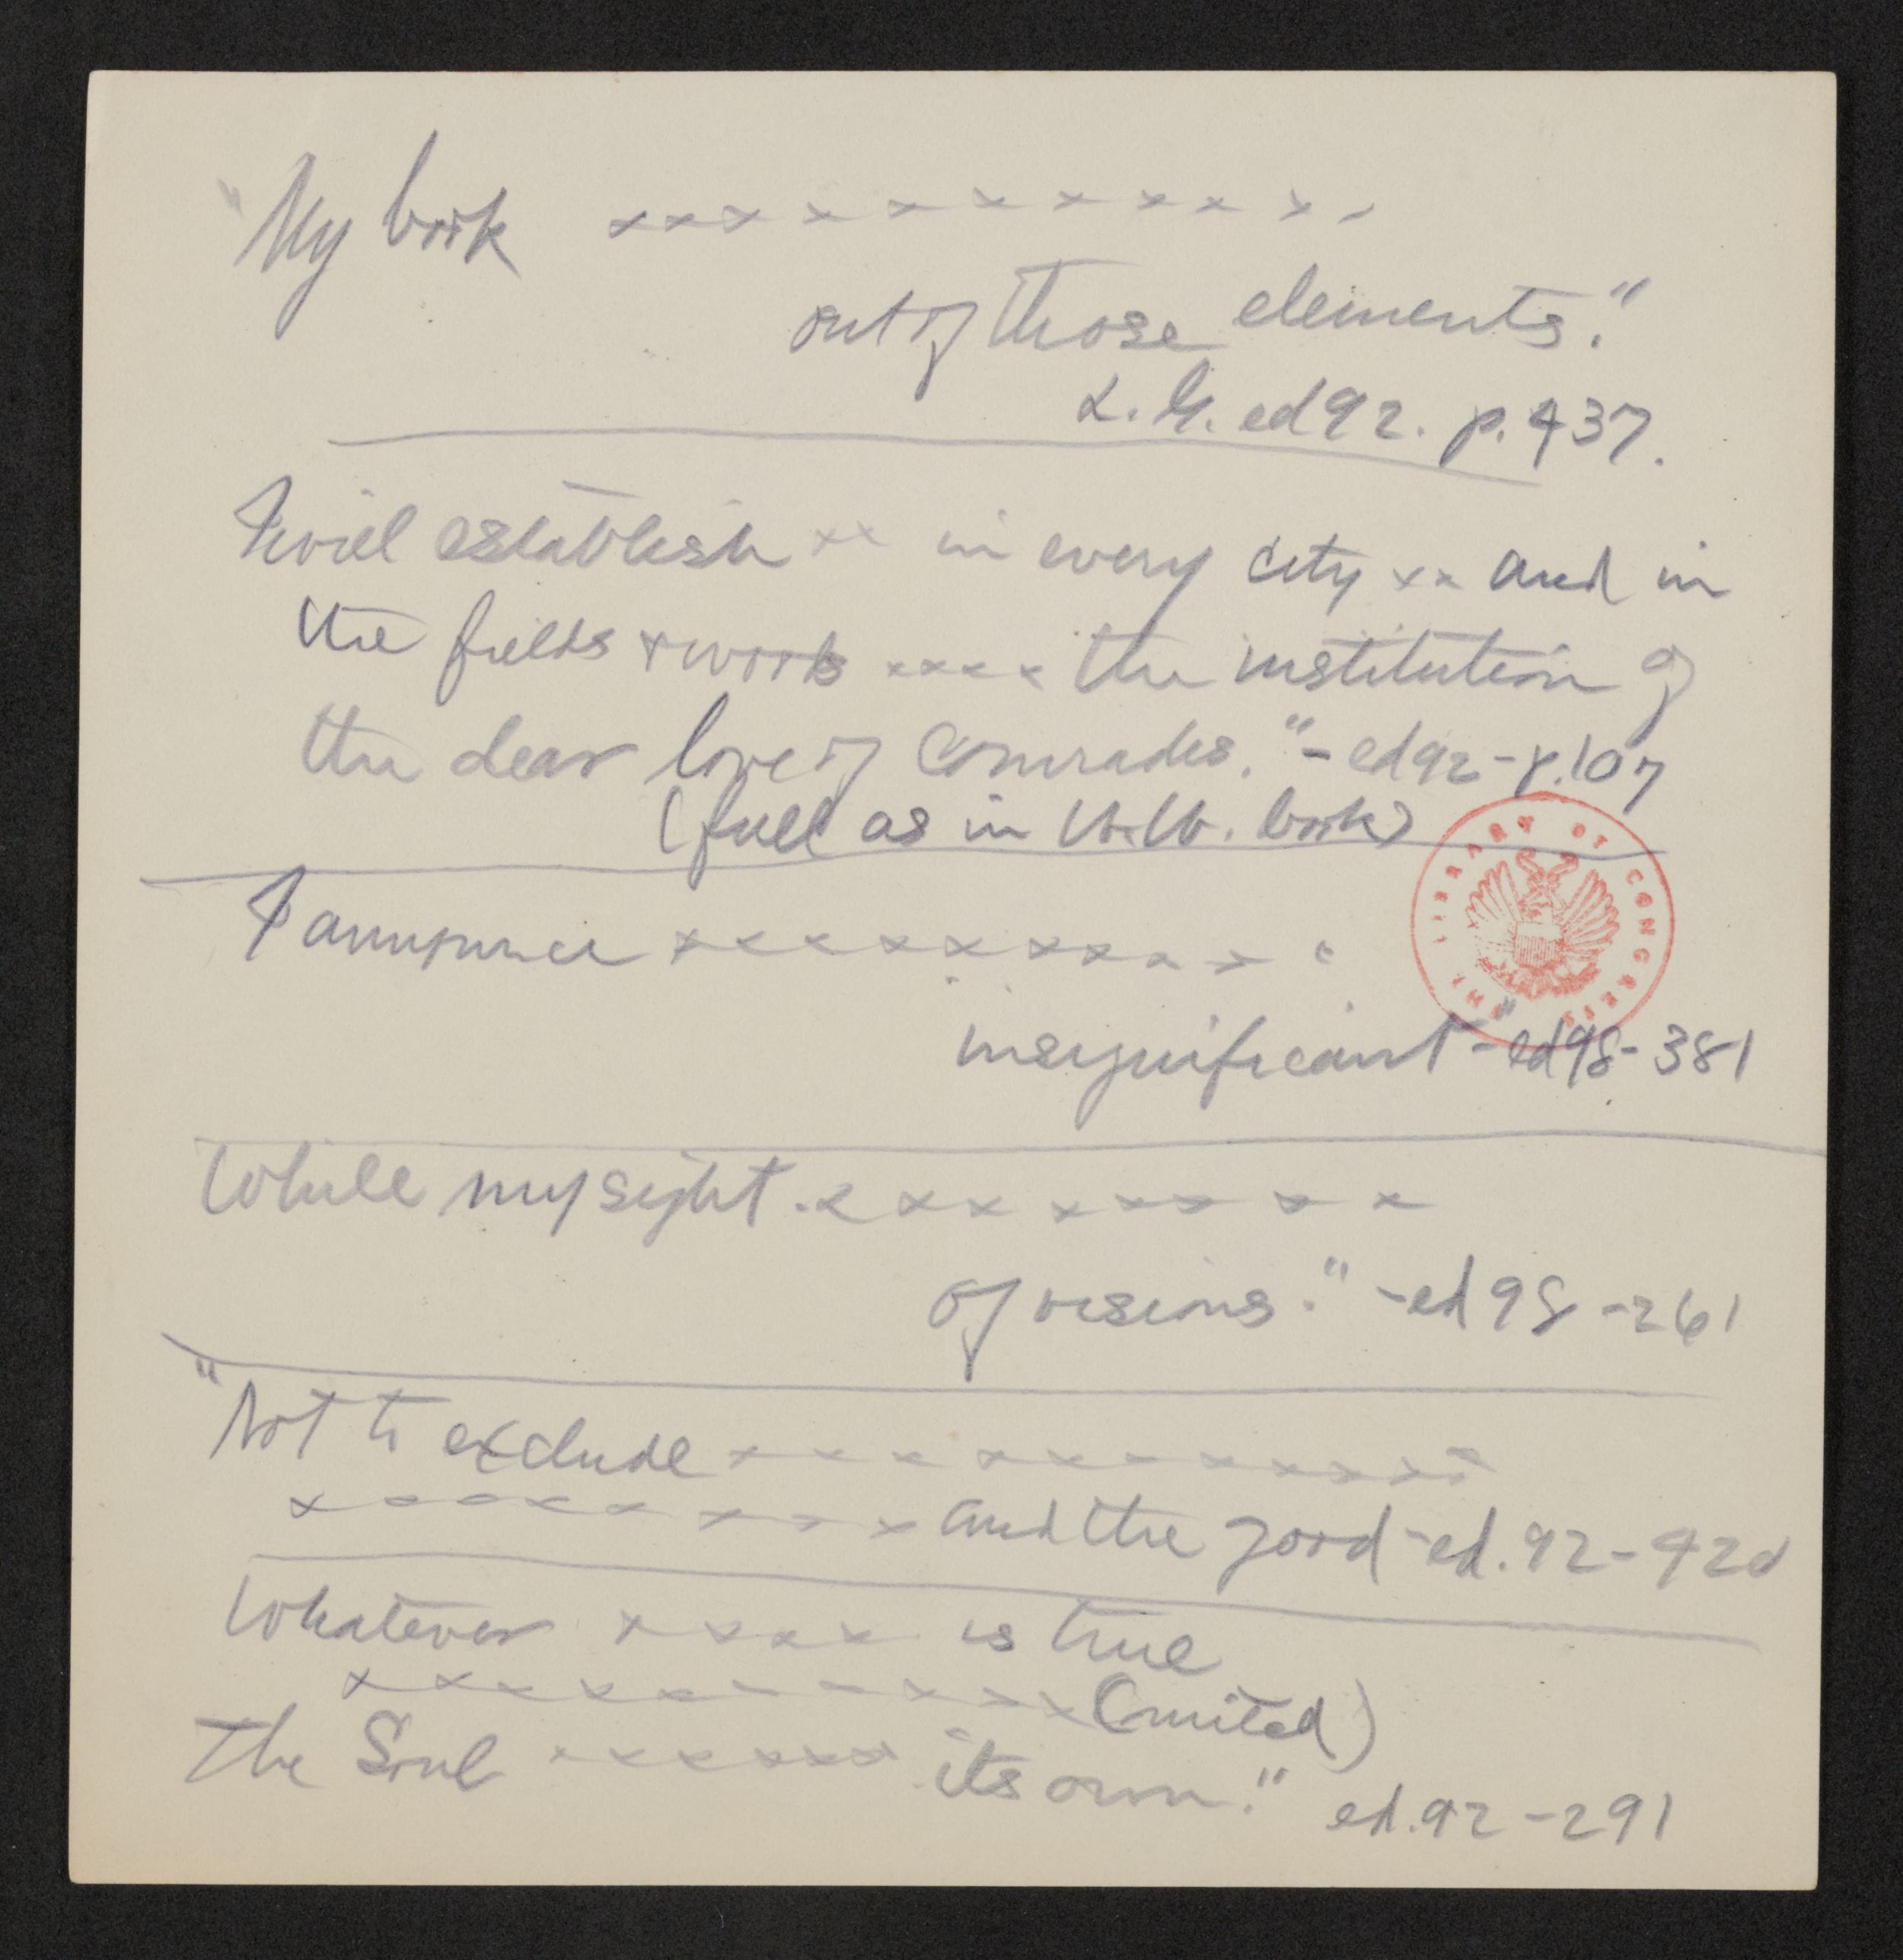 "My book x x x x x x x x x x x
out of those elements."
L. G. ed 92. p. 437.
I will establish x x in every city x x and in
the fields & woods x x x x the institution of
the dear love of comrades." - ed 92 - p. 107
(full as in W. W. book)
I announce x x x x x x x x x x
insignificant" - ed 98 - 381
While my sight . x x x x x x x x
of visions." - ed 98 - 261
"Not to exclude x x x x x x x x x x x
x x x x x x x x and the good - ed. 92 - 420
Whatever x x x x is true
x x x x x x x x x x (omitted)
The Soul x x x x x x x its own." ed. 92 - 291
THE LIBRARY OF CONGRESS